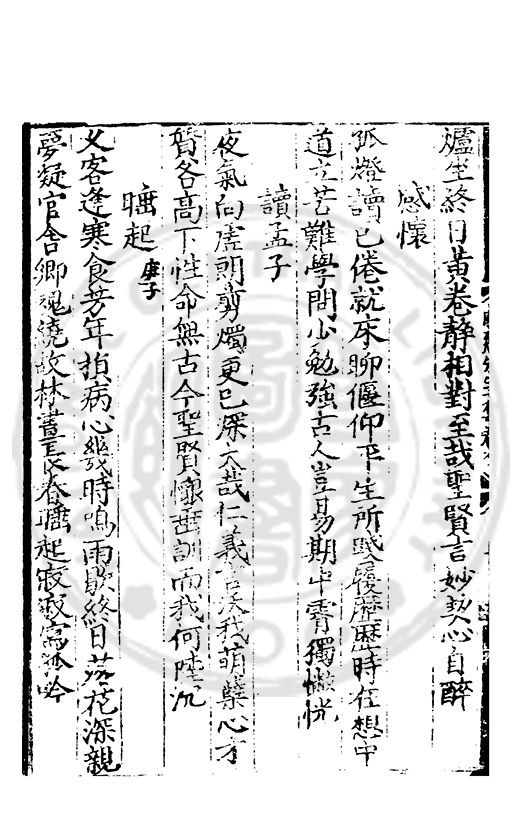 爐坐終日黃卷靜相對至哉聖賢言妙契心自醉
感懷
孤燈讀已倦就床聊偃仰平生所踐履歷歷時在想中
道立苦難學問少勉強古人豈易期中霄獨慨恍
讀孟子
夜氣向虛朗剪燭更已深大哉仁義言沃我萌櫱心才
質各高下性命無古今聖賢懷垂訓而我何陸沉
睡起 庚子
久客逢寒食芳年抱病心幾時鳴雨歇終日落花深親
夢疑官舍鄉魂繞故林晝長春睡起寂寂寫孤吟